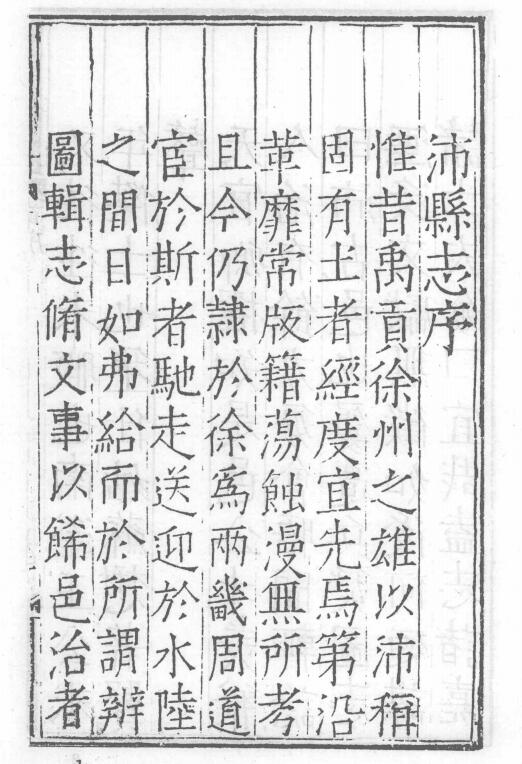 沛縣志序
惟昔禹貢徐州之雄以沛稱
固有土者經度宜先焉第沿
革靡常版籍蕩蝕漫無所考
且今仍隷於徐爲兩畿周道
宦於斯者馳走送迎於水陸
之間日如弗給而於所謂辨
圖輯志脩文事以餙邑治者